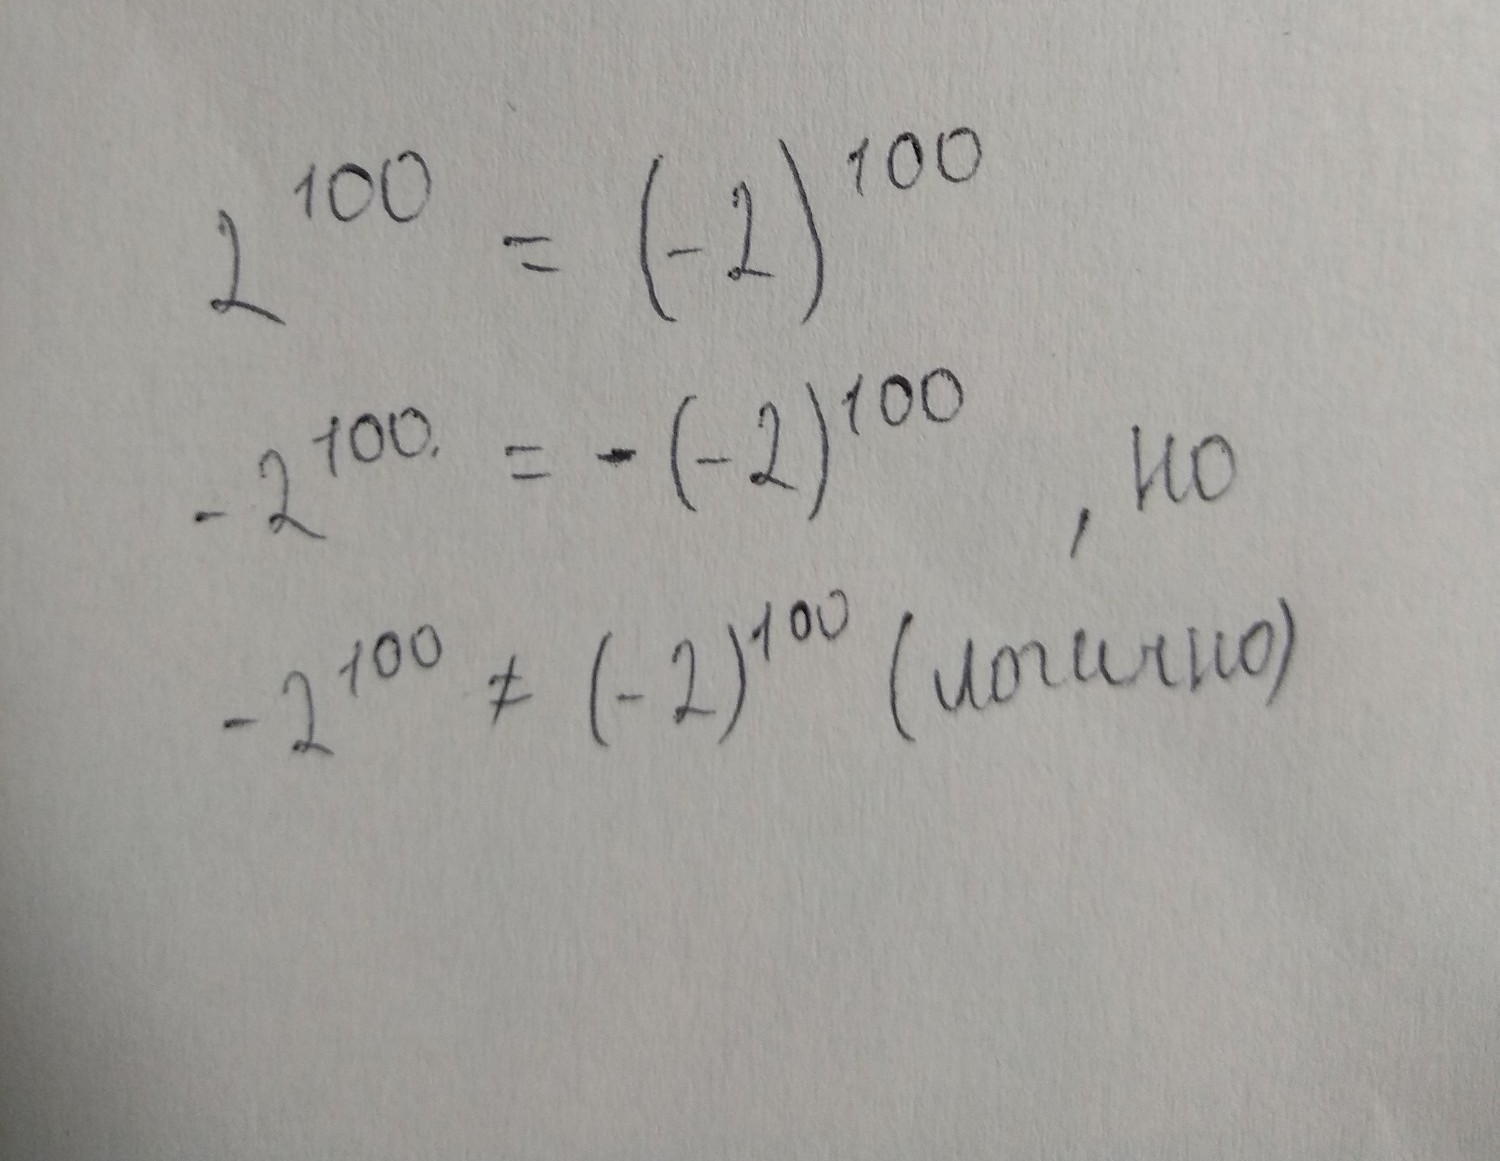 2^100 = (-2)^100
-2^100. = -(-2)^100 , но
-2^100 ≠ (-2)^100 (логично)